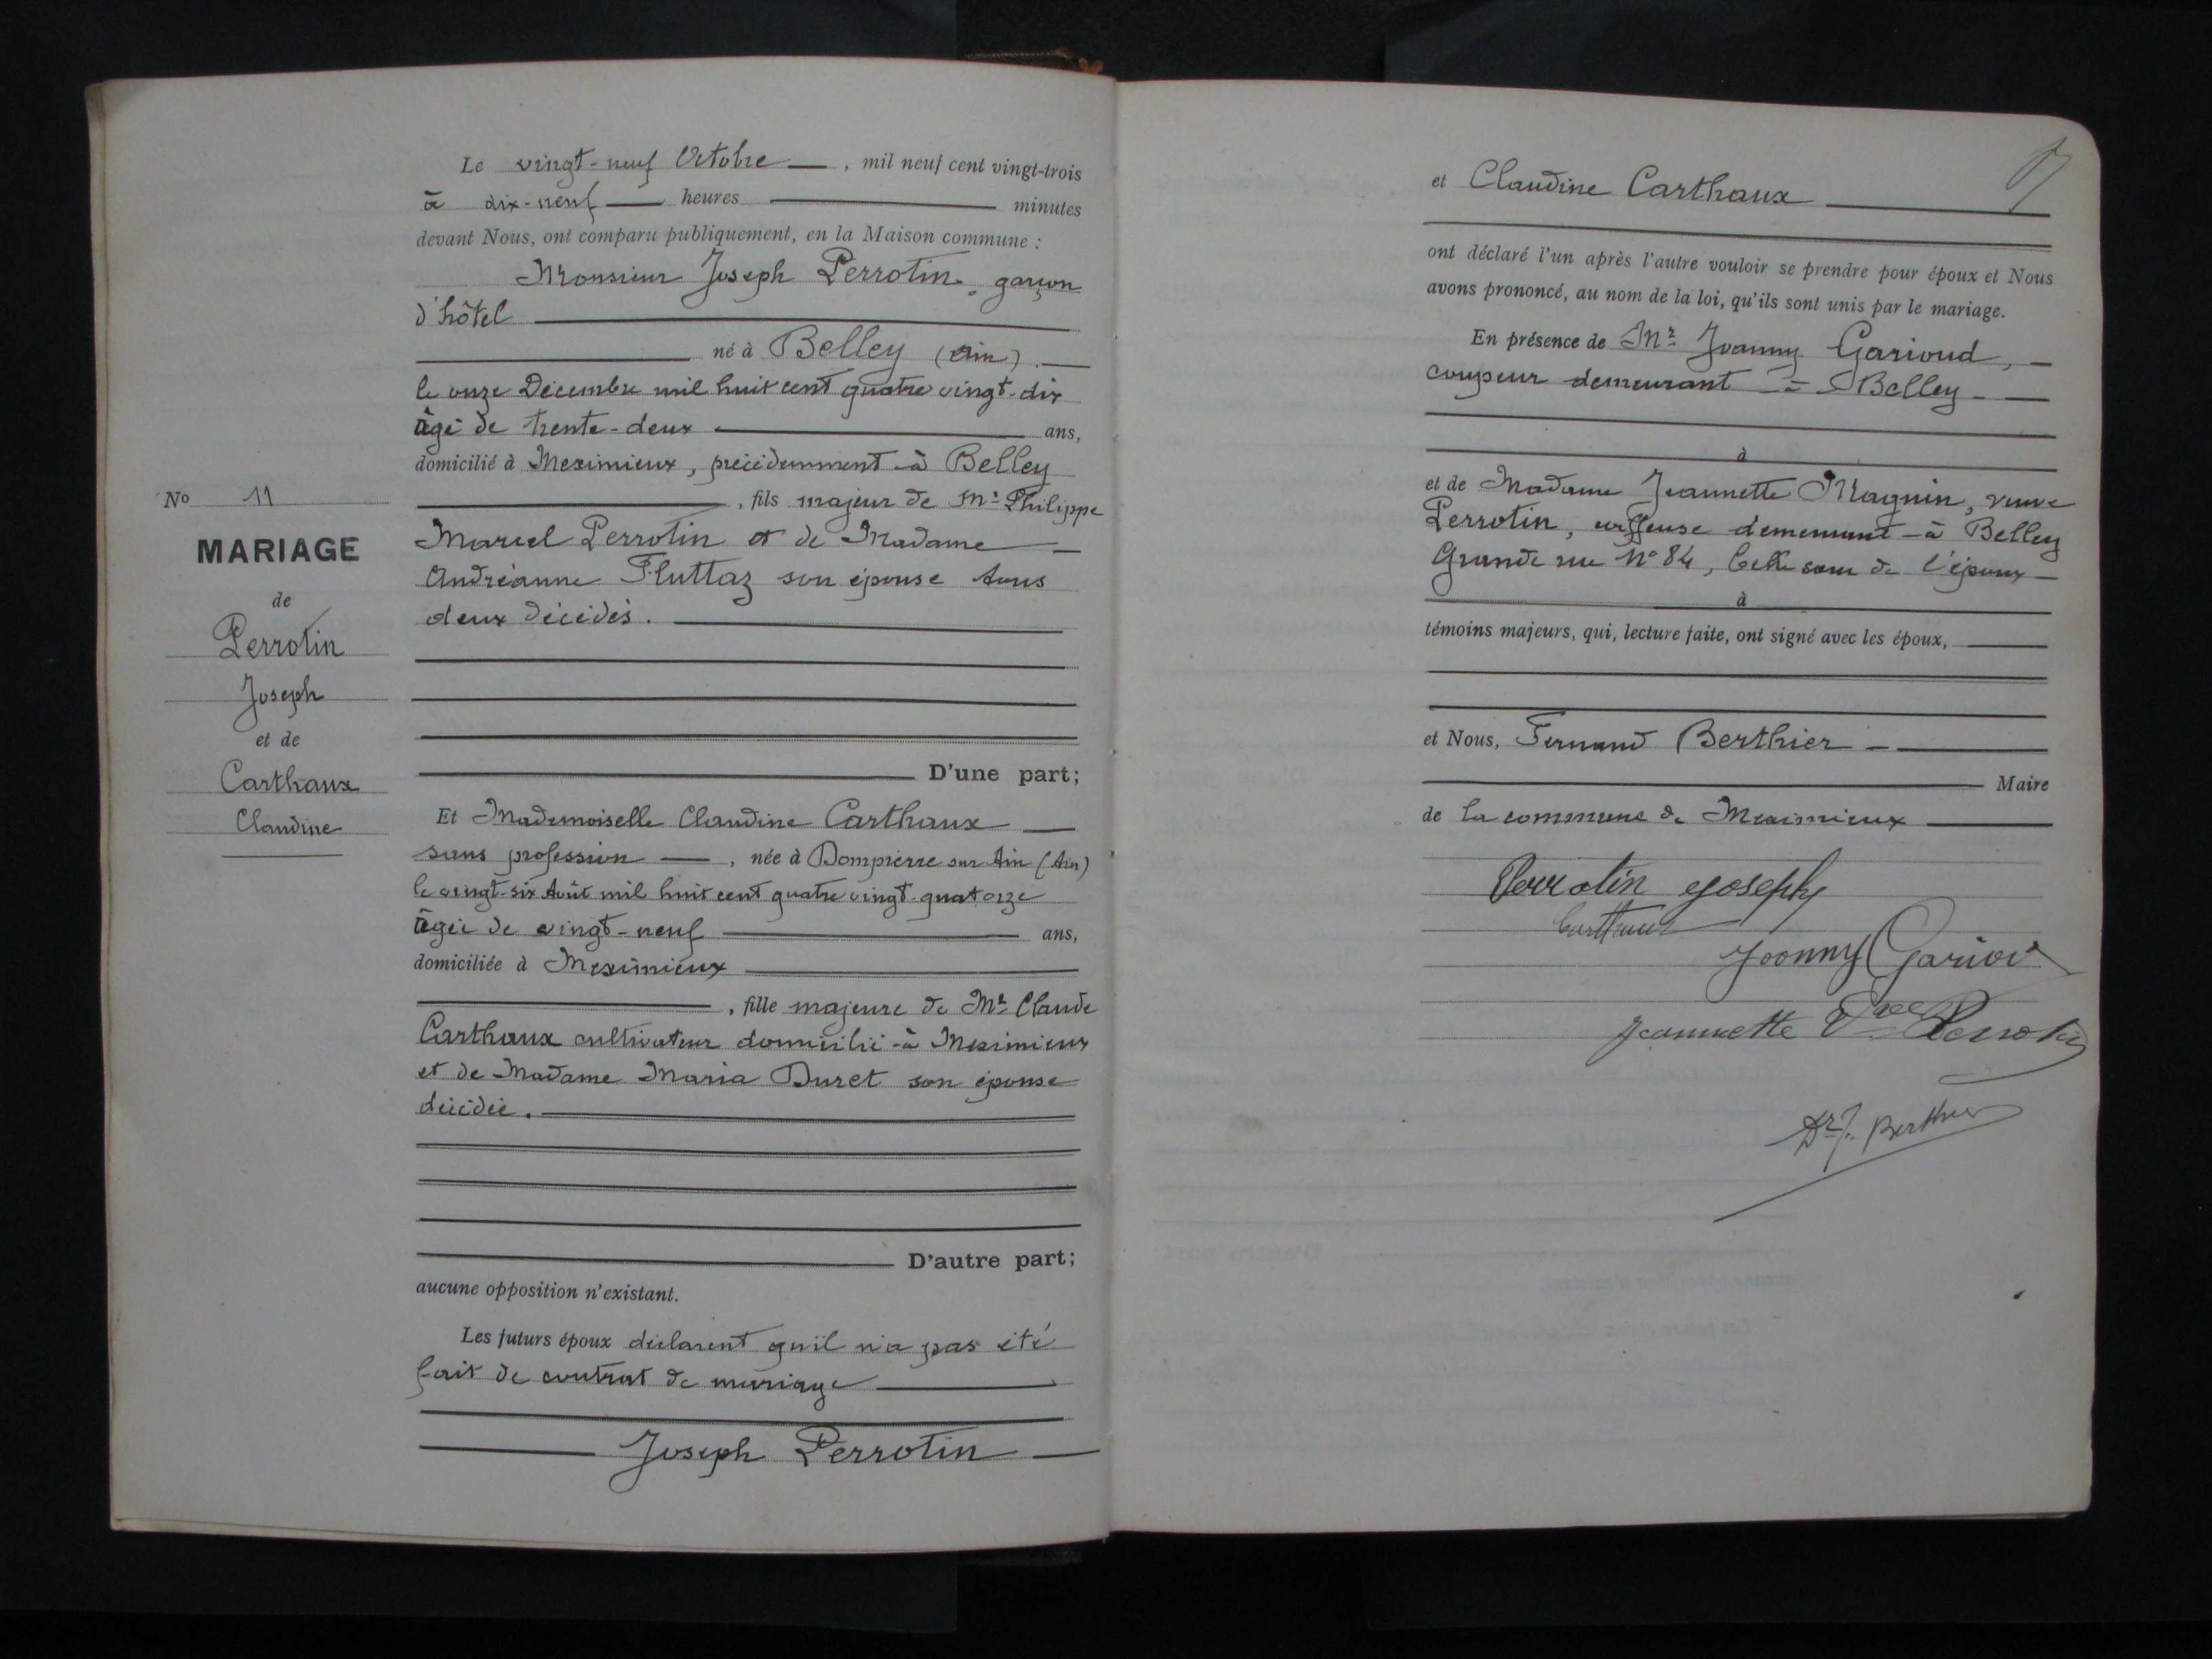 Le vingt-neuf Octobre, mil neuf cent vingt-trois
à dix-neuf heures minutes
devant Nous, ont comparu publiquement, en la Maison commune :
Monsieur Joseph Perrotin, garçon
d'hôtel
né à Belley (Ain).
le onze Décembre mil huit cent quatre vingt-dix
âgé de trente-deux ans,
domicilié à Meximieux, précédemment à Belley
, fils majeur de Mr Philippe
Marcel Perrotin et de Madame
Andréanne Fluttaz son épouse tous
deux décédés.
D'une part;
Et Mademoiselle Claudine Carthaux
sans profession, née à Dompierre sur Ain (Ain)
le vingt-six Août mil huit cent quatre vingt-quatorze
âgée de vingt-neuf ans,
domiciliée à Meximieux
, fille majeure de Mr Claude
Carthaux cultivateur domicilié à Meximieux
et de Madame Maria Duret son épouse
décédée.
D'autre part;
aucune opposition n'existant.
Les futurs époux déclarent qu'il n'a pas été
fait de contrat de mariage
Joseph Perrotin
No 11
MARIAGE
de
Perrotin
Joseph
et de
Carthaux
Claudine
et Claudine Carthaux
ont déclaré l'un après l'autre vouloir se prendre pour époux et Nous
avons prononcé, au nom de la loi, qu'ils sont unis par le mariage.
En présence de Mr Joanny Garioud,
coupeur demeurant à Belley
à
et de Madame Jeannette Magnin, veuve
Perrotin, coiffeuse demeurant à Belley
Grande rue No 84, belle sœur de l'époux
à
témoins majeurs, qui, lecture faite, ont signé avec les époux,
et Nous, Fernand Berthier
Maire
de la commune de Meximieux
Perrotin Joseph
Carthaux
Joanny Gariod
Jeannette Vve Perrotin
Dr F. Berthier